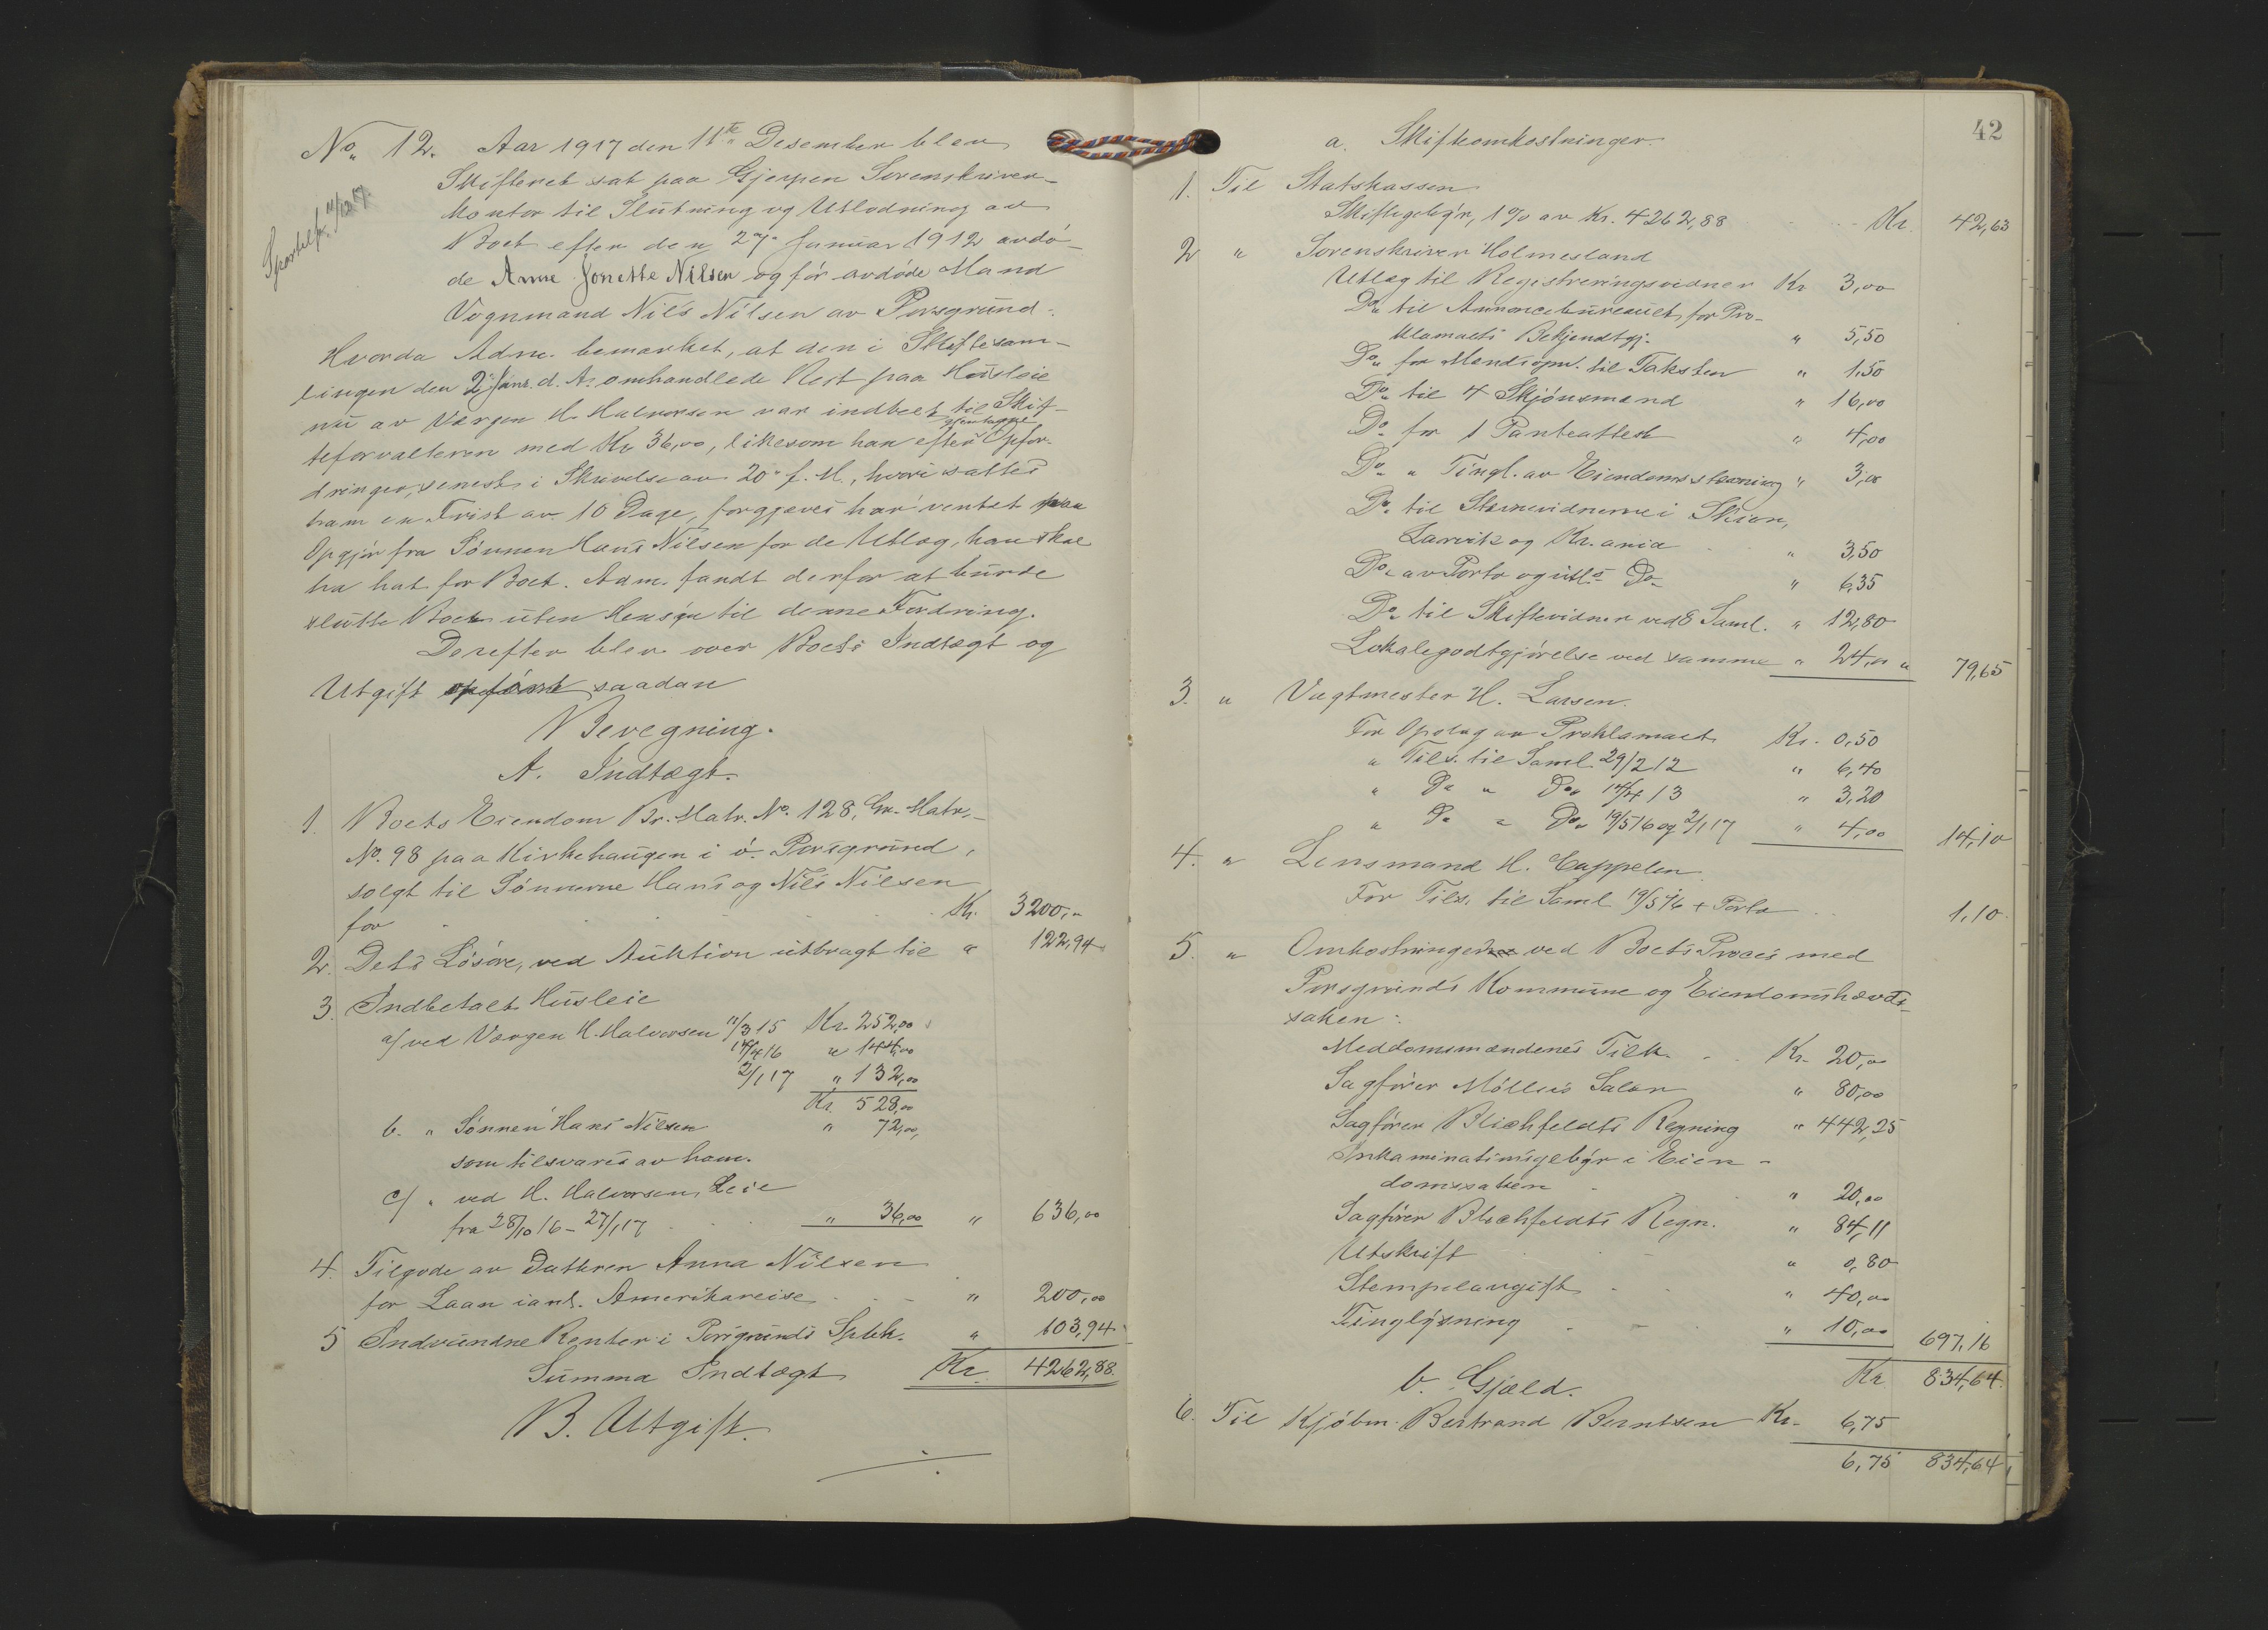 No. 12. Aar 1917 den 11te Desember blev
Skifteret sat paa Gjerpen Sorenskriver-
kontor til Slutning og Utlodning av
Boet efter den 27. Januar 1912 avdö-
de Anne Jonette Nilsen og för avdöde Mand
Vognmand Nils Nilsen av Porsgrund.
Hvorda Adm. bemerket, at den i Skiftesam-
lingen den 2. Janr. d. A. omhandlede Rest paa Husleie
nu av Værgen H. Halvorsen var indbet. til Skif-
teforvalteren med Kr. 36,00, likesom han efter gjentagne Opfor-
dringer, senest i Skrivelse av 20. f. M., hvori sattes
ham en Frist av 10 Dage, forgjæves har ventet paa
Opgjör fra Sönnen Hans Nilsen for de Utlæg, han skal
ha hat for Boet. Adm. fandt derfor at burde
slutte Boet uten Hensyn til denne Fordring.
Derefter blev over Boets Indtægt og
Utgift opfört saadan
Beregning.
A. Indtægt.
1. Boets Eiendom Br. Matr. No. 128, Gr. Matr.
No. 98 paa Kirkehaugen i ö. Porsgrund,
solgt til Sönnerne Hans og Nils Nilsen
for Kr. 3200,"
2. Dets Lösöre, ved Auktion utbragt til " 122,94
3. Indbetalt Husleie
a/ ved Værgen H. Halvorsen 11/3 15 Kr. 252,00
14/4 16 " 144,00
2/1 17 " 132,00
Kr. 528,00
b. " Sönnen Hans Nilsen " 72,00,
som tilsvares av ham.
c/ " ved H. Halvorsen, Leie
fra 28/10 16 - 27/1 17 " 36,00 " 636,00
4. Tilgode av Datteren Anna Nilsen
for Laan ianl. Amerikareise " 200,00
5 Indvundne Renter i Porsgrunds Spbk. " 103,94
Summa Indtægt Kr. 4262,88.
B. Utgift.
42
a. Skifteomkostninger.
1. Til Statskassen
Skiftegebyr, 1% av Kr. 4262,88 Kr. 42,63
2 " Sorenskriver Holmesland
Utlæg til Registreringsvidner Kr. 3,00
Do. til Annoncebureauet for Pro-
klamaets Bekjendtgj. " 5,50
Do. for Mandsopn. til Taksten " 1,50
Do. til 4 Skjönsmænd " 16,00
Do. for 1 Panteattest " 4,00
Do. " Tingl. av Eiendomsstevning " 3,00
Do. til Stevnevidnerne i Skien,
Larvik og Kr.ania " 3,50
Do. av Porto og utl. Do. " 6,35
Do. til Skiftevidner ved 8 Saml. " 12,80
Lokalegodtgjörelse ved samme " 24,00 " 79,65
3. " Vagtmester H. Larsen.
For Opslag av Proklamaet Kr. 0,50
" Tils. til Saml. 29/2 12 " 6,40
" Do " Do. 14/4 13 " 3,20
" Do " Do. 19/5 16 og 2/1 17 " 4,00 14,10
4. " Lensmand H. Cappelen
For Tils. til Saml. 19/5 16 + Porto 1,10
5. " Omkostninger ved Boets Proces med
Porsgrunds Kommune og Eiendomshævds-
saken:
Meddomsmændenes Tilk. Kr. 20,00
Sagförer Möllers Salær " 80,00
Sagförer Blichfeldts Regning " 442,25
Inkaminationsgebyr i Eien-
domssaken " 20,00
Sagförer Blichfeldts Regn. " 84,11
Utskrift " 0,80
Stempelavgift " 40,00
Tinglysning " 10,00 697,16
Kr. 834,64.
b. Gjæld.
6. Til Kjöbm. Bertrand Berntsen Kr. 6,75
6,75 834,64